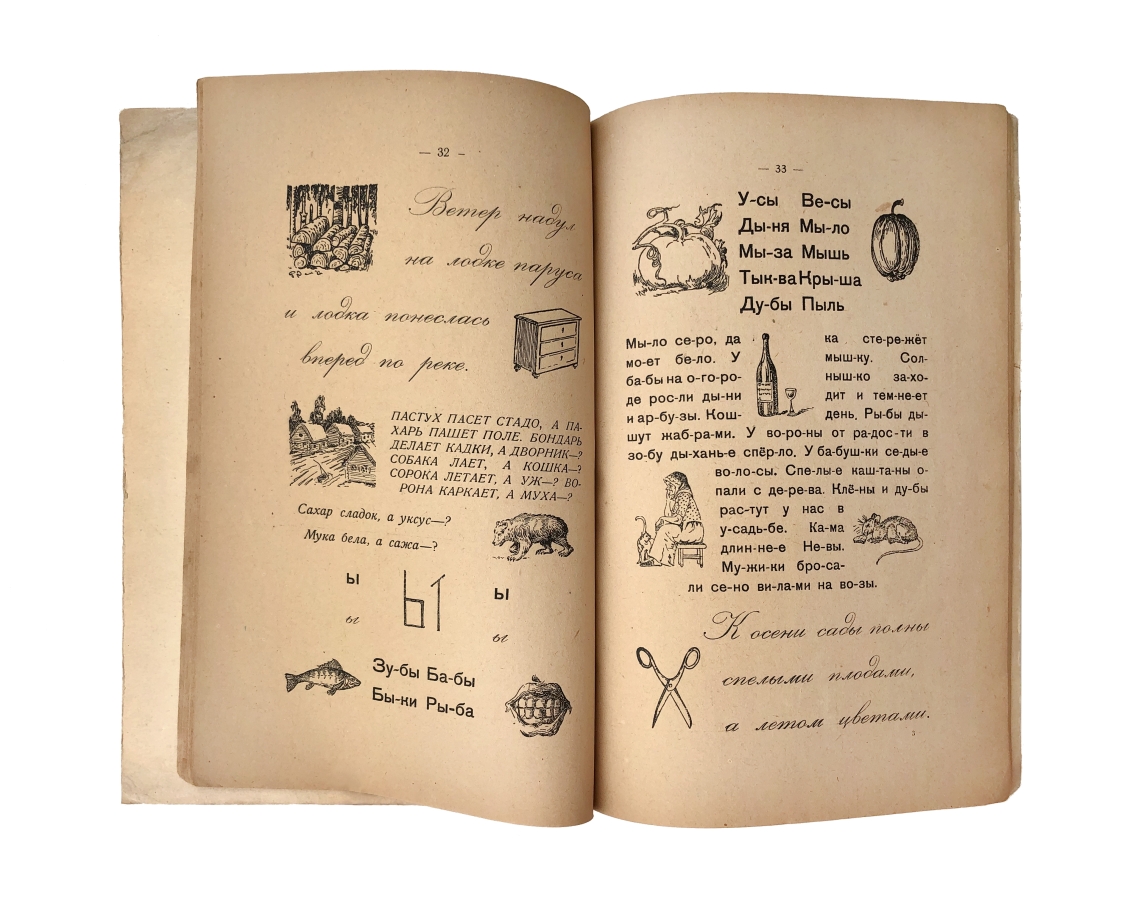 — 32 —
Ветер надул
на лодке паруса
и лодка понеслась
вперед по реке.
ПАСТУХ ПАСЕТ СТАДО, А ПА-
ХАРЬ ПАШЕТ ПОЛЕ. БОНДАРЬ
ДЕЛАЕТ КАДКИ, А ДВОРНИК—?
СОБАКА ЛАЕТ, А КОШКА—?
СОРОКА ЛЕТАЕТ, А УЖ—? ВО-
РОНА КАРКАЕТ, А МУХА—?
Сахар сладок, а уксус—?
Мука бела, а сажа—?
ы Ы ы
ы ы
Зу-бы Ба-бы
Бы-ки Ры-ба
— 33 —
У-сы Ве-сы
Ды-ня Мы-ло
Мы-за Мышь
Тык-ва Кры-ша
Ду-бы Пыль
Мы-ло се-ро, да
мо-ет бе-ло. У
ба-бы на о-го-ро-
де рос-ли ды-ни
и ар-бу-зы. Кош-
ка сте-ре-жёт
мыш-ку. Сол-
ныш-ко за-хо-
дит и тем-не-ет
день. Ры-бы ды-
шут жаб-ра-ми. У во-ро-ны от ра-дос-ти в
зо-бу ды-хань-е спёр-ло. У ба-буш-ки се-ды-е
во-ло-сы. Спе-лы-е каш-та-ны о-
пали с де-ре-ва. Клё-ны и ду-бы
рас-тут у нас в
у-садь-бе. Ка-ма
длин-не-е Не-вы.
Му-жи-ки бро-са-
ли се-но ви-ла-ми на во-зы.
К осени сады полны
спелыми плодами,
а летом цветами.
3